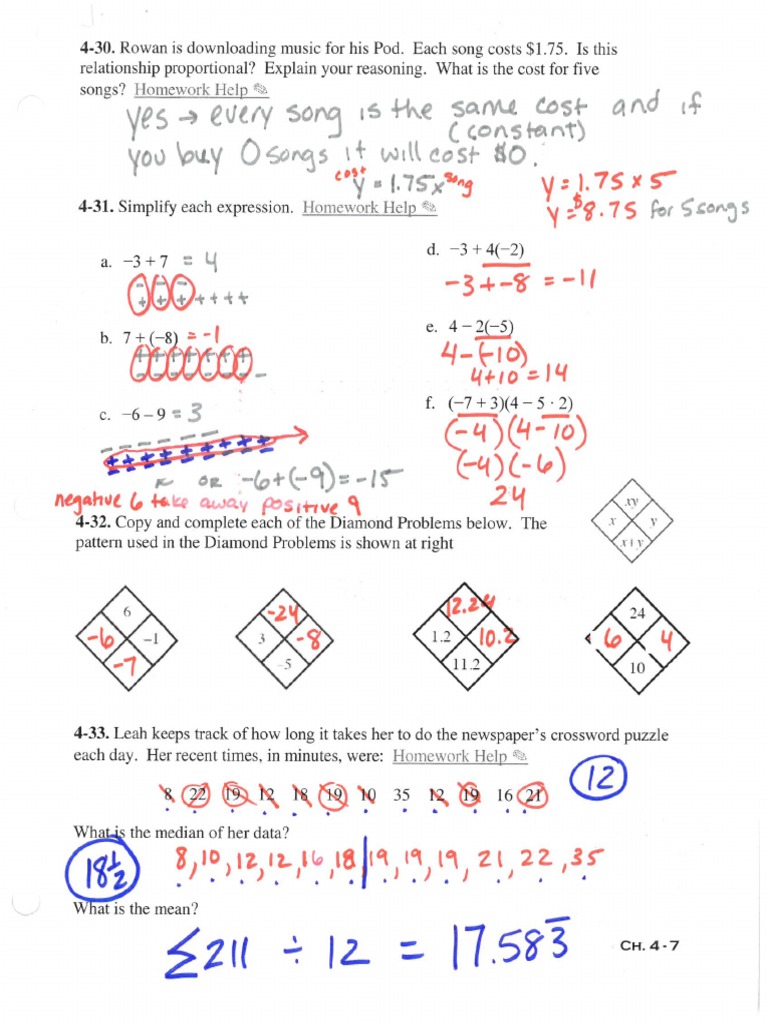 4-30. Rowan is downloading music for his Pod. Each song costs $1.75. Is this
relationship proportional? Explain your reasoning. What is the cost for five
songs? Homework Help ✎
yes → every song is the same cost and if
(constant)
you buy 0 songs it will cost $0.
cost y = 1.75x song
y = 1.75 x 5
y = $8.75 for 5 songs
4-31. Simplify each expression. Homework Help ✎
a. −3 + 7 = 4
d. −3 + 4(−2)
-3 + -8 = -11
b. 7 + (−8) = -1
e. 4 − 2(−5)
4-(-10)
4+10 = 14
c. −6 − 9 = 3
f. (−7 + 3)(4 − 5 · 2)
(-4)(4-10)
(-4)(-6)
24
OR -6+(-9) = -15
negative 6 take away positive 9
4-32. Copy and complete each of the Diamond Problems below. The
pattern used in the Diamond Problems is shown at right
xy
x y
x+y
6
-6 −1
-7
-24
3 -8
−5
12.24
1.2 10.2
11.2
24
6 4
10
4-33. Leah keeps track of how long it takes her to do the newspaper's crossword puzzle
each day. Her recent times, in minutes, were: Homework Help ✎
8 22 19 12 18 19 10 35 12 19 16 21
12
What is the median of her data?
18 1/2
8, 10, 12, 12, 16, 18 | 19, 19, 19, 21, 22, 35
What is the mean?
∑211 ÷ 12 = 17.583̅
CH. 4 - 7